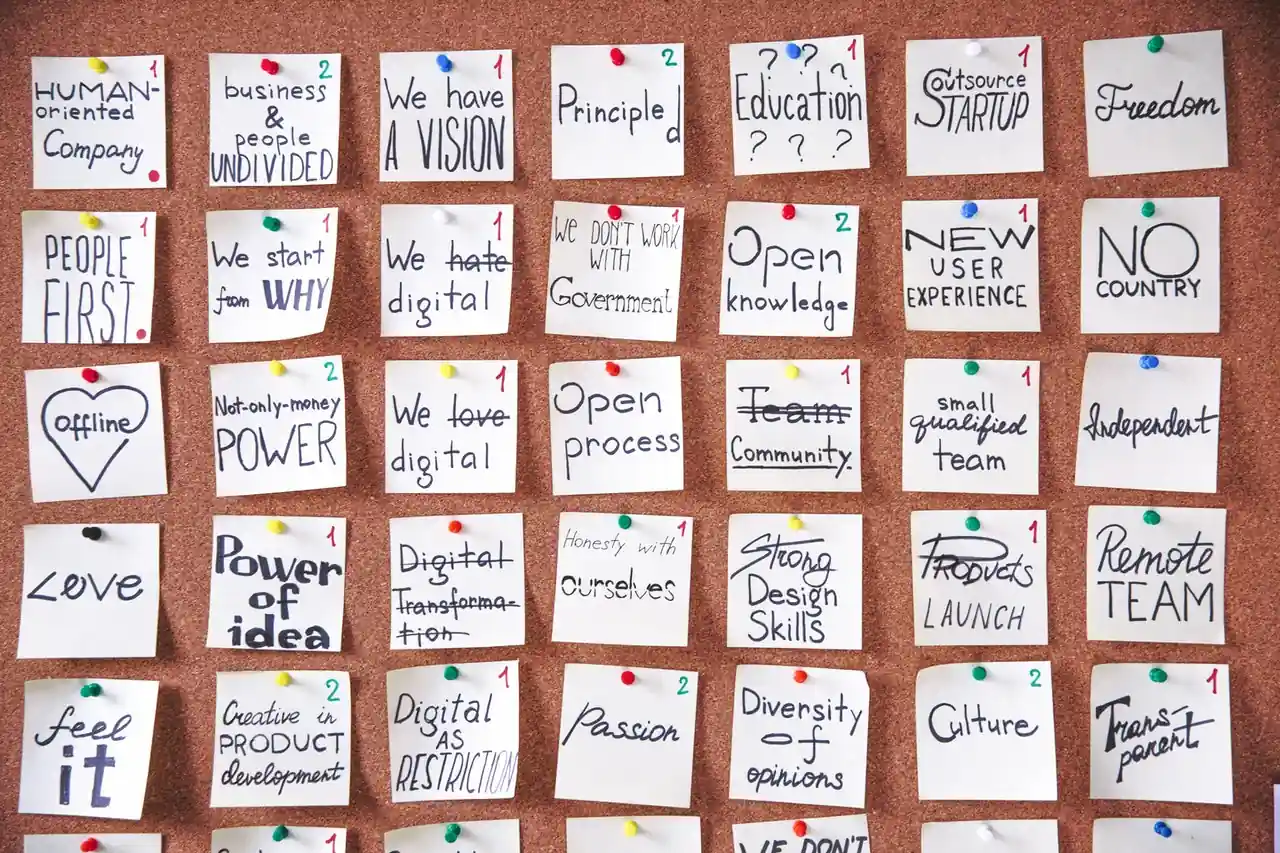 HUMAN- 1
oriented
Company
business 2
&
people
UNDIVIDED
We have 1
A VISION
Principled 2
? ? ? 1
Education
? ? ?
Outsource 1
STARTUP
Freedom
PEOPLE 1
FIRST
We start 1
from WHY
We hate 1
digital
We DON'T WORK 1
WITH
Government
Open 2
knowledge
NEW 1
USER
EXPERIENCE
NO
COUNTRY
offline
Not-only-money 2
POWER
We love 1
digital
Open
process
Team 1
Community.
small 1
qualified
team
Independent
Love
Power 1
of
idea
Digital
Transforma-
tion
Honesty with 1
ourselves
Strong
Design
Skills
Products 1
LAUNCH
Remote
TEAM
feel
it
Creative in 2
PRODUCT
development
Digital 1
AS
RESTRICTION
Passion 2
Diversity
of
opinions
Culture 2
Trans- 1
parent
1
WE DON'T